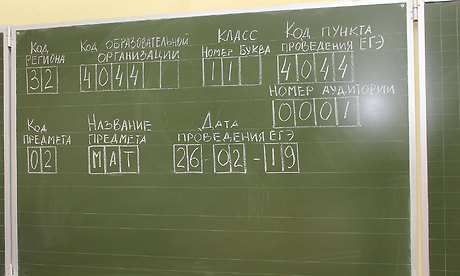 Код региона
32
Код образовательной организации
4044
Класс
номер буква
11
Код пункта проведения ЕГЭ
4044
Номер аудитории
0001
Код предмета
02
Название предмета
МАТ
Дата проведения ЕГЭ
26-02-19